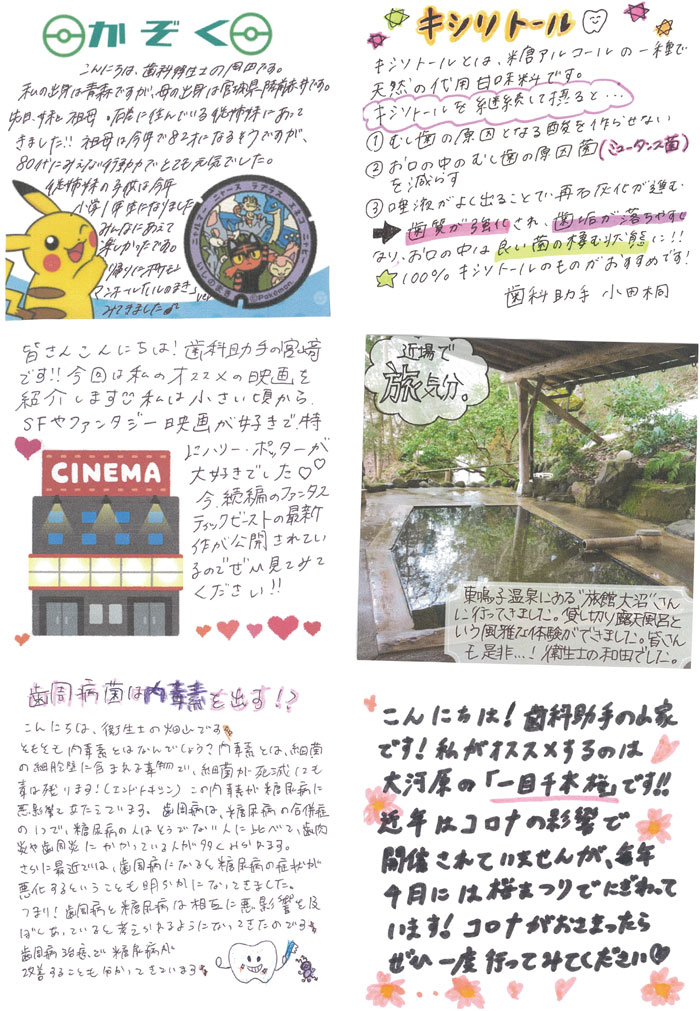 かぞく
こんにちは、歯科衛生士の岡田です。
私の出身は青森ですが、母の出身は宮城県
先日、妹と祖母、石巻に住んでいる従姉妹にあって
きました!! 祖母は今年で82才になるそうですが、
80代にみえない行動力でとても元気でした。
従姉妹の子供は今年
小学1年生になりました
みんなにあえて
楽しかったです。
帰りにポケモン
マンホールいしのまきver
みてきました♪
キシリトール
キシリトールとは、糖アルコールの一種で
天然の代用甘味料です。
キシリトールを継続して摂ると…
①むし歯の原因となる酸を作らせない
②お口の中のむし歯の原因菌(ミュータンス菌)
を減らす
③唾液がよく出ることで、再石灰化が進む
➡ 歯質が強化され、歯垢が落ちやすく
なり、お口の中は良い菌の棲む状態に!!
☆100%キシリトールのものがおすすめです!
歯科助手 小田桐
皆さんこんにちは!歯科助手の宮崎
です!!今回は私のオススメの映画を
紹介します♡私は小さい頃から
SFやファンタジー映画が好きで特
にハリー・ポッターが
大好きでした♡♡
今、続編のファンタス
ティックビーストの最新
作が公開されてい
るのでぜひ見てみて
ください!!
CINEMA
近場で
旅気分。
東鳴子温泉にある"旅館大沼"さん
に行ってきました。貸し切り露天風呂と
いう風雅な体験ができました。皆さん
も是非…!衛生士の和田でした。
歯周病菌は内毒素を出す!?
こんにちは、衛生士の畑山です
そもそも内毒素とはなんでしょう?内毒素とは、細菌
の細胞壁に含まれる毒物で、細菌が死滅しても
毒は残ります!(エンドトキシン)この内毒素が糖尿病に
悪影響を与えています。歯周病は、糖尿病の合併症
の1つで、糖尿病の人はそうでない人に比べて、歯肉
炎や歯周炎にかかっている人が多くみられます。
さらに最近では、歯周病になると糖尿病の症状が
悪化するということも明らかになってきました。
つまり!歯周病と糖尿病は相互に悪影響を及
ぼしあっていると考えられるようになってきたのです
歯周病治療で糖尿病が
改善することも分かってきています
こんにちは!歯科助手の山家
です!私がオススメするのは
大河原の「一目千本桜」です!!
近年はコロナの影響で
開催されていませんが、毎年
4月には桜まつりでにぎわって
います!コロナがおさまったら
ぜひ一度行ってみてください♡